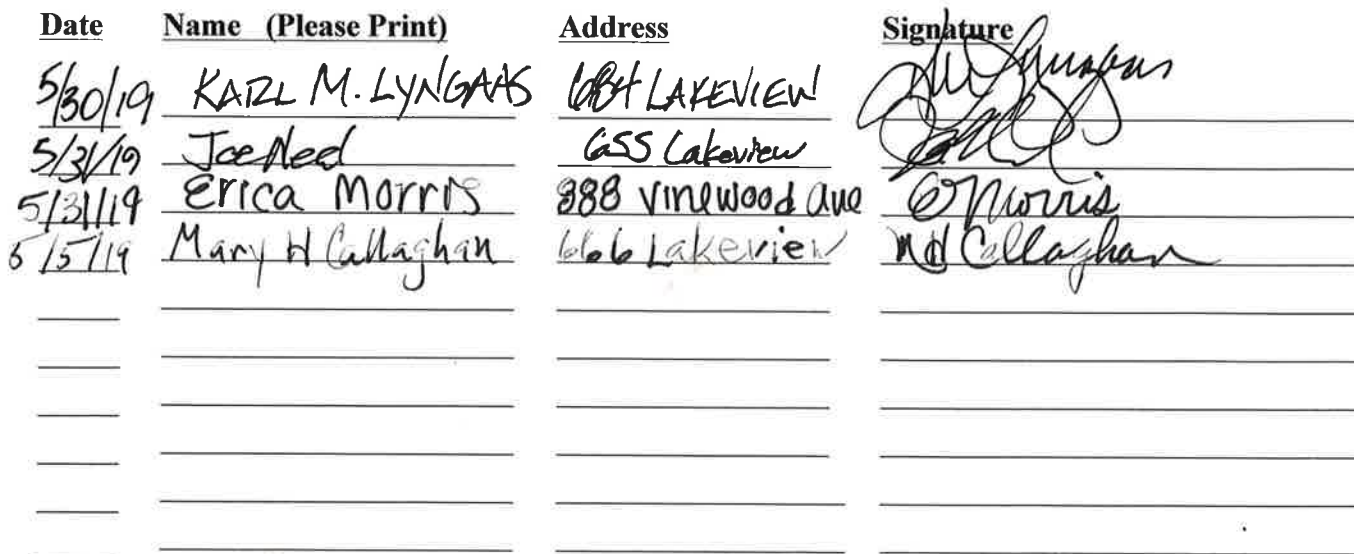 Date Name (Please Print) Address Signature
5/30/19 KARL M. LYNGAAS 684 LAKEVIEW
5/31/19 Joe Need 655 Lakeview
5/31/19 Erica Morris 888 Vinewood Ave EMorris
5/5/19 Mary H Callaghan 666 Lakeview MH Callaghan